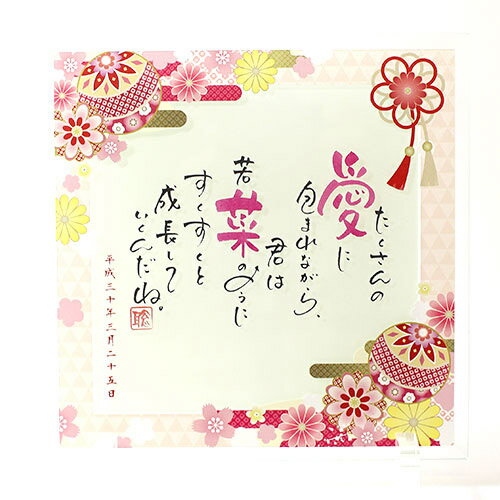 たくさんの
愛に
包まれながら、
君は
若菜のように
すくすくと
成長して
いくんだね。
平成三十年三月二十五日